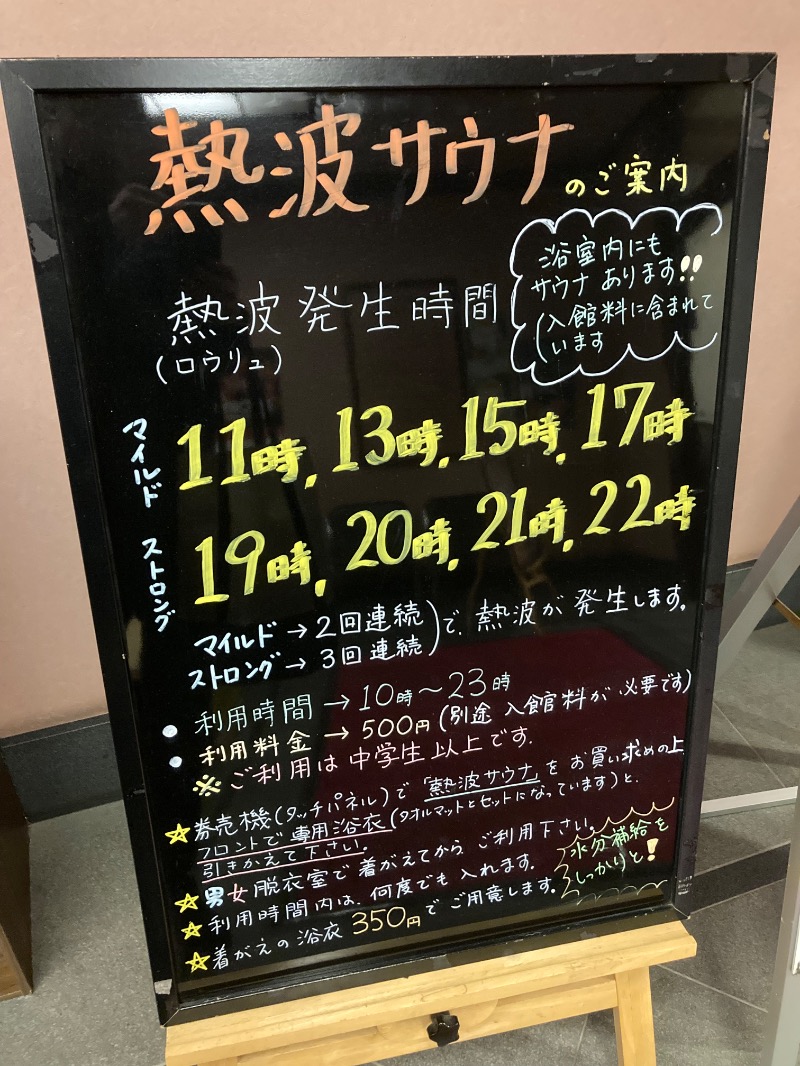 熱波サウナのご案内
浴室内にも
サウナあります!!
(入館料に含まれて
います
熱波発生時間
(ロウリュ)
マイルド 11時, 13時, 15時, 17時
ストロング 19時, 20時, 21時, 22時
マイルド→2回連続
ストロング→3回連続)で、熱波が発生します。
● 利用時間→10時〜23時
● 利用料金→500円(別途 入館料が必要です)
※ ご利用は中学生以上です.
☆券売機(タッチパネル)で「熱波サウナ」をお買い求めの上
フロントで専用浴衣(タオルマットとセットになっています)と、
引きかえて下さい。
☆男女脱衣室で着がえてからご利用下さい。
☆利用時間内は、何度でも入れます。
☆着がえの浴衣350円でご用意します。
水分補給を
しっかりと!